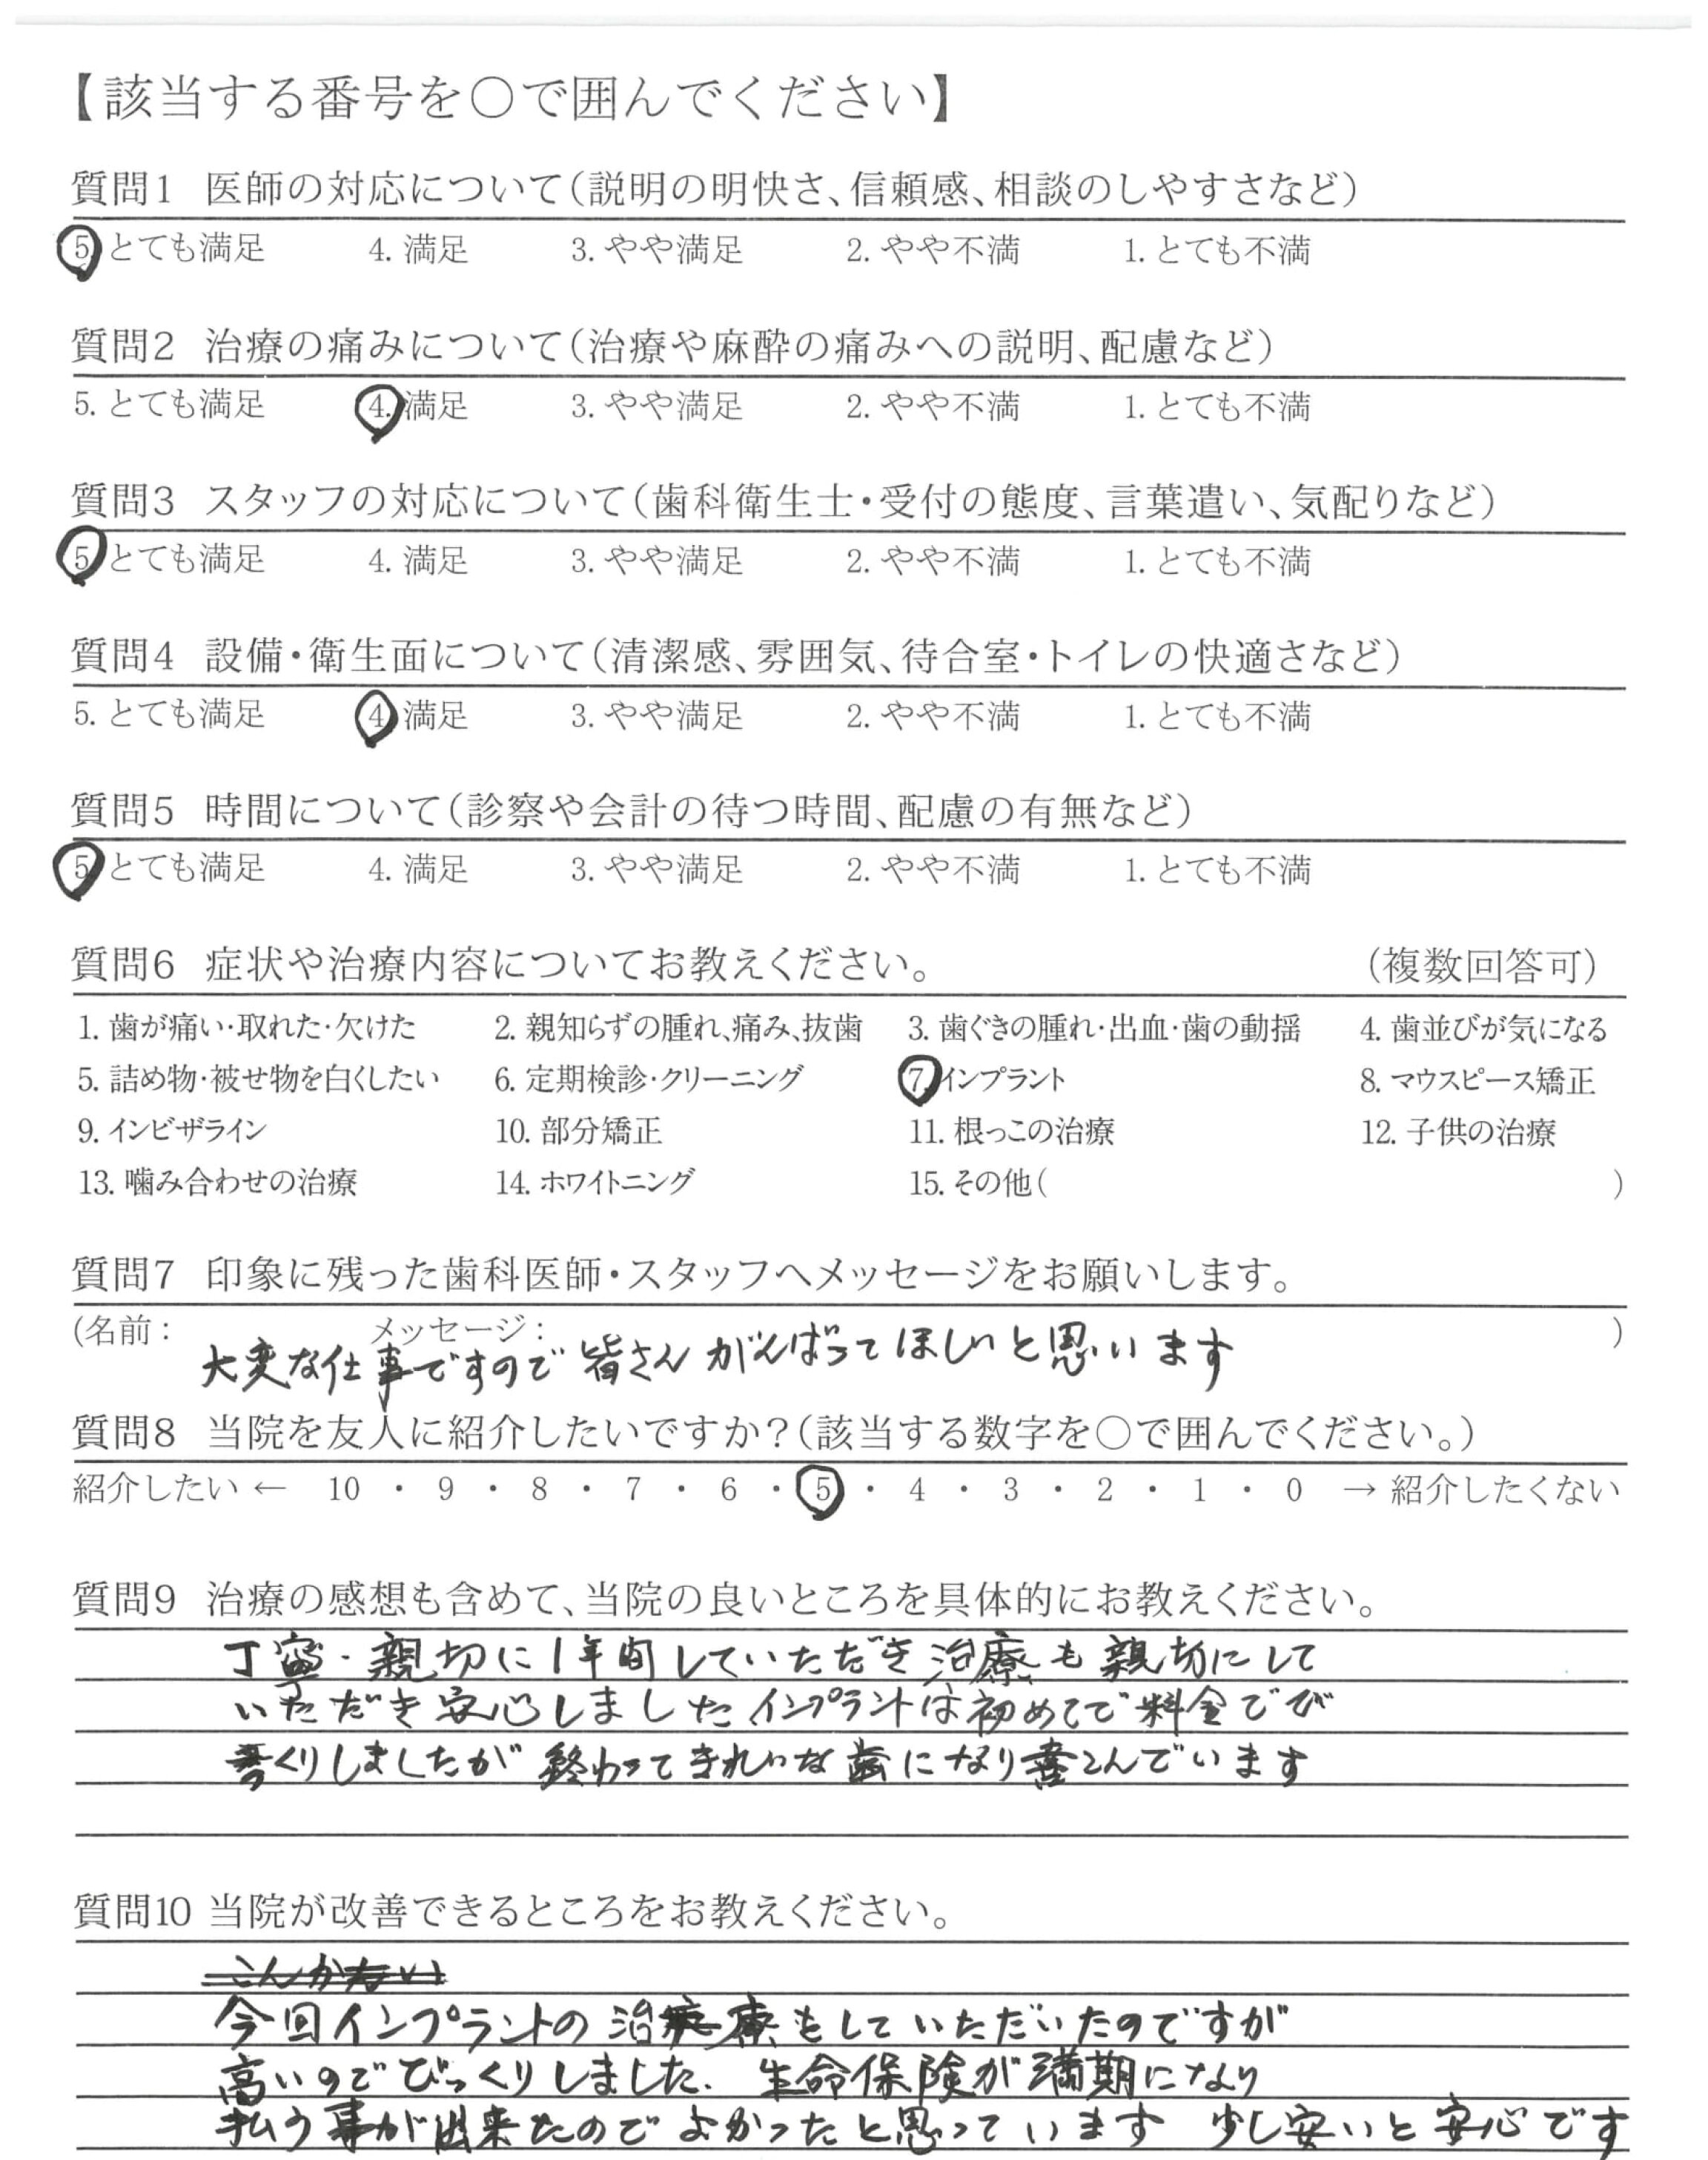 【該当する番号を○で囲んでください】
質問1 医師の対応について(説明の明快さ、信頼感、相談のしやすさなど)
5. とても満足 4. 満足 3. やや満足 2. やや不満 1. とても不満
質問2 治療の痛みについて(治療や麻酔の痛みへの説明、配慮など)
5. とても満足 4. 満足 3. やや満足 2. やや不満 1. とても不満
質問3 スタッフの対応について(歯科衛生士・受付の態度、言葉遣い、気配りなど)
5. とても満足 4. 満足 3. やや満足 2. やや不満 1. とても不満
質問4 設備・衛生面について(清潔感、雰囲気、待合室・トイレの快適さなど)
5. とても満足 4. 満足 3. やや満足 2. やや不満 1. とても不満
質問5 時間について(診察や会計の待つ時間、配慮の有無など)
5. とても満足 4. 満足 3. やや満足 2. やや不満 1. とても不満
質問6 症状や治療内容についてお教えください。 (複数回答可)
1. 歯が痛い・取れた・欠けた 2. 親知らずの腫れ、痛み、抜歯 3. 歯ぐきの腫れ・出血・歯の動揺 4. 歯並びが気になる
5. 詰め物・被せ物を白くしたい 6. 定期検診・クリーニング 7. インプラント 8. マウスピース矯正
9. インビザライン 10. 部分矯正 11. 根っこの治療 12. 子供の治療
13. 噛み合わせの治療 14. ホワイトニング 15. その他( )
質問7 印象に残った歯科医師・スタッフへメッセージをお願いします。
(名前: メッセージ: )
大変な仕事ですので皆さんがんばってほしいと思います
質問8 当院を友人に紹介したいですか?(該当する数字を○で囲んでください。)
紹介したい ← 10 ・ 9 ・ 8 ・ 7 ・ 6 ・ 5 ・ 4 ・ 3 ・ 2 ・ 1 ・ 0 → 紹介したくない
質問9 治療の感想も含めて、当院の良いところを具体的にお教えください。
丁寧・親切に1年間していただき治療も親切にして
いただき安心しましたインプラントは初めてで料金でび
くりしましたが 終わってきれいな歯になり喜こんでいます
質問10 当院が改善できるところをお教えください。
今回インプラントの治療をしていただいたのですが
高いのでびっくりしました. 生命保険が満期になり
払う事が出来たのでよかったと思っています 少し安いと安心です